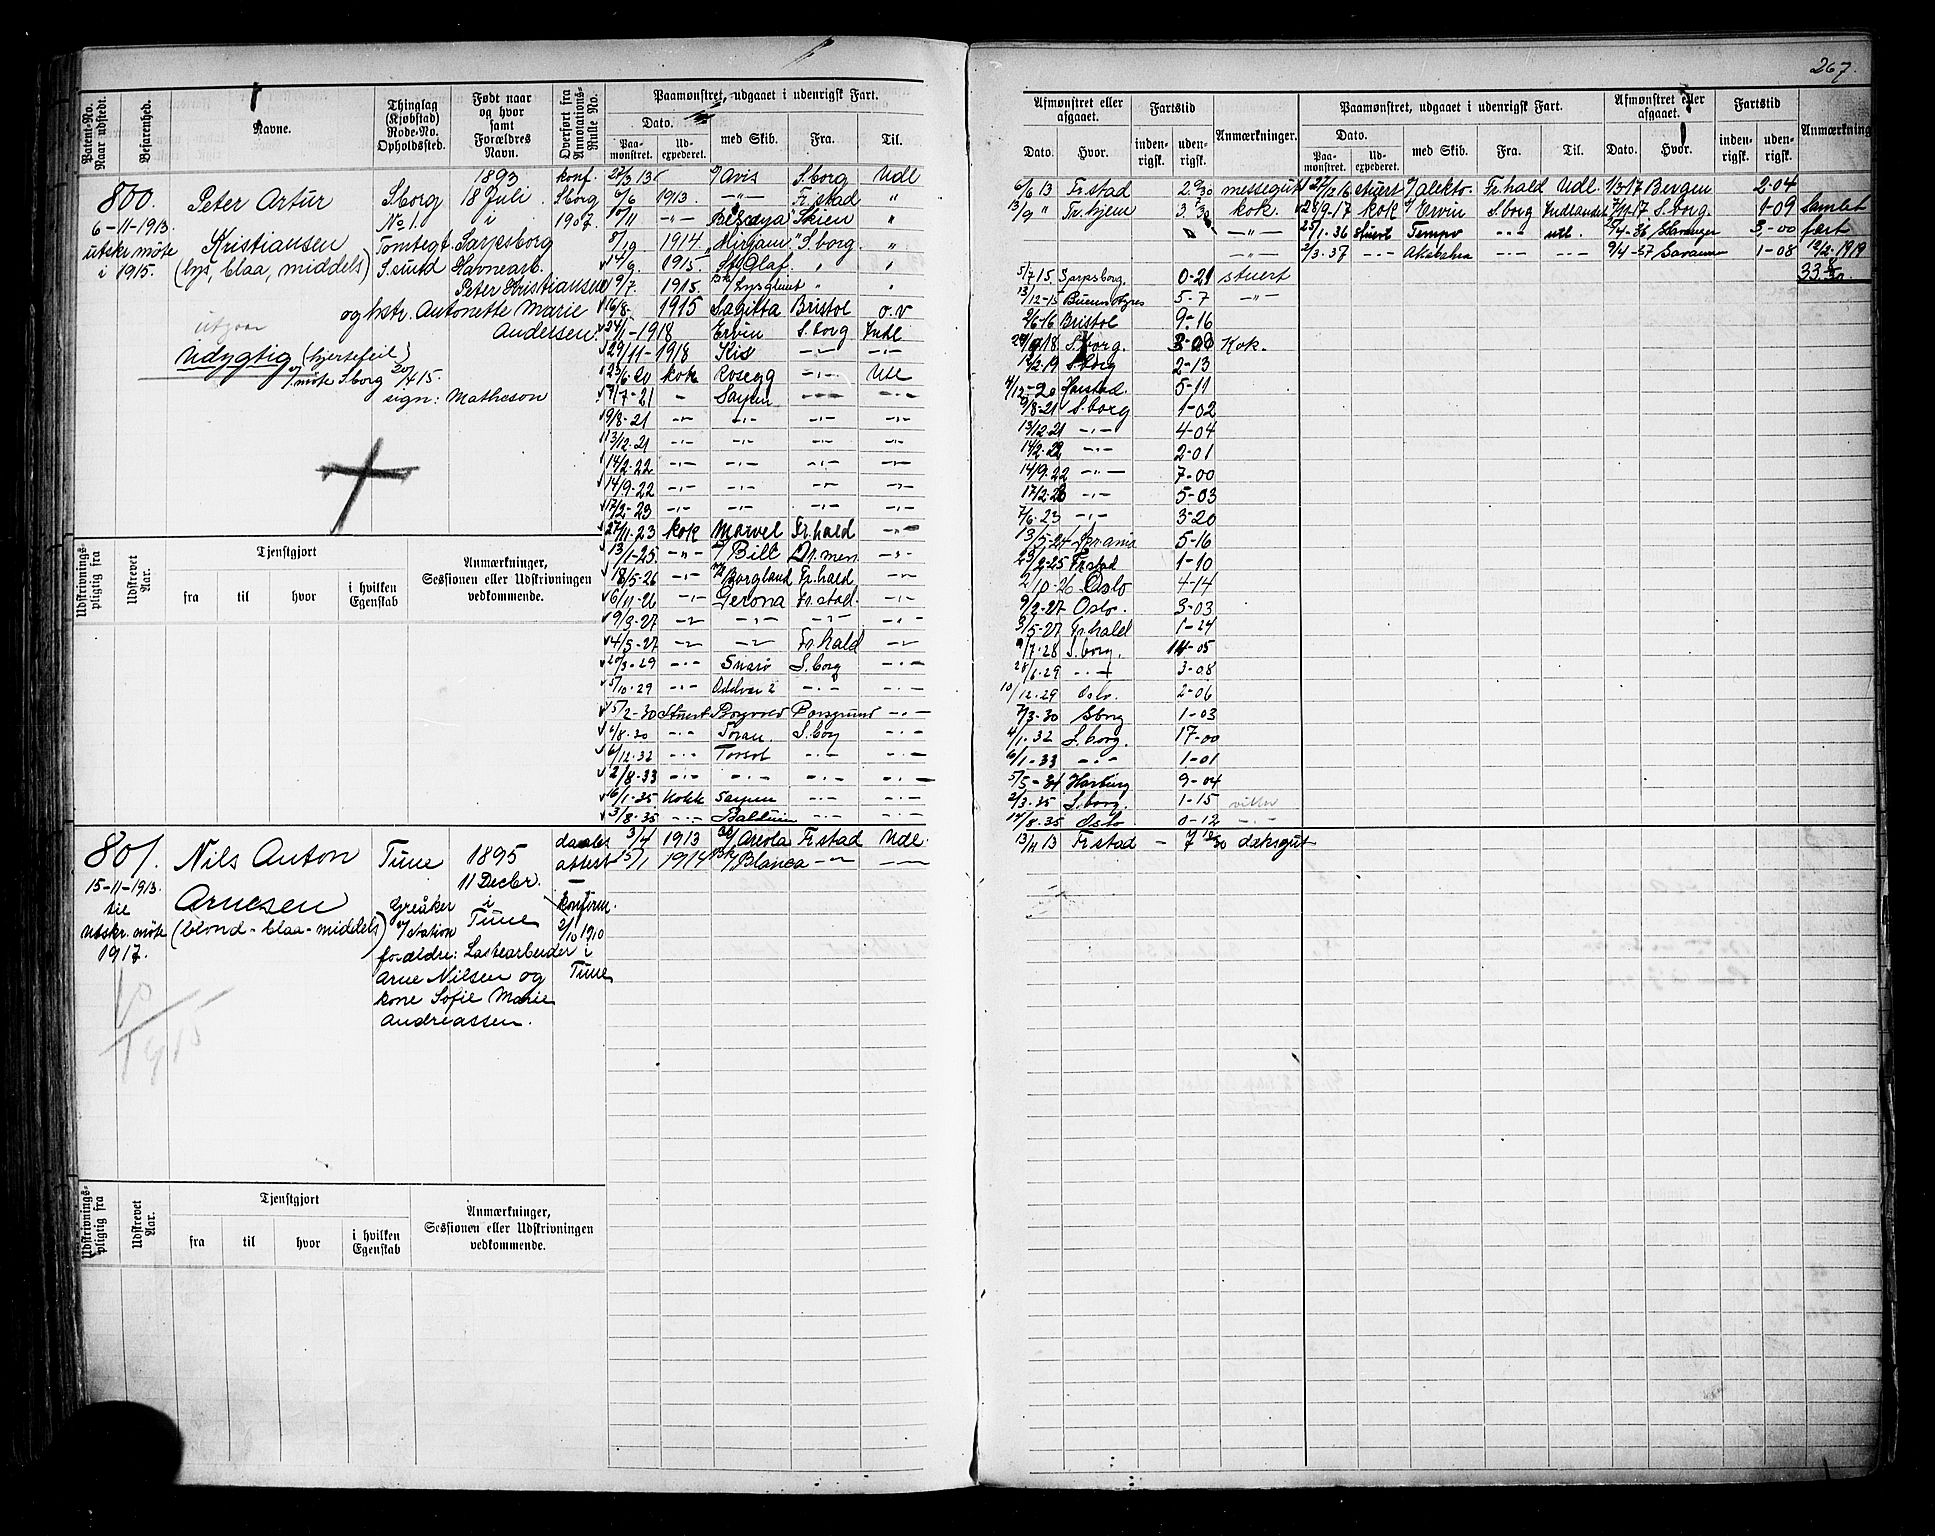 267.
Patent-No. Naar udstedt.
Befarenhed.
Navne.
Thinglag (Kjøbstad) Rode-No. Opholdssted.
Født naar og hvor samt Forældres Navn.
Overført fra Annotations-Rulle No.
Paamønstret, udgaaet i udenrigsk Fart.
Dato.
Paa-mønstret.
Ud-expederet.
med Skib.
Fra.
Til.
800.
6-11-1913.
utskr. møte
i 1915.
Peter Artur
Kristiansen
(lys, blaa, middels)
S.borg
No 1.
Tomtegt.
S.sund
1893
18 Juli
i
Sarpsborg
Havnearb.
Peter Kristiansen
og hstr. Antonette Marie
Andersen.
konf.
S.borg
1907.
utgaar
Udygtig (hjertefeil)
v/møte S.borg 20/4 15.
sign: Matheson
Avis S.borg Udl
6/6 1913 —"— Fr.stad "
Skien "
1914. Mirjam S.borg "
14/9 1915. St. Olaf " "
19/7. 1915. "
16/8. 1915 Sagitta Bristol o.v
24/1-1918 Ervin S.borg Indl
29/11-1918 Kis —"— —"—
23/6.20 kok Rosegg —"— Utl
1/7-21 - Sarpen —"— —"—
19/8-21 —"— —"— —"— —"—
13/12.21 —"— —"— —"— —"—
14/2-22 —"— —"— —"— —"—
14/9-22 —"— —"— —"— —"—
17/2-23 —"— —"— —"— —"—
27/11.23 kok Marvel Fr.hald —"—
13/1-25 —"— Bill Dr.men —"—
18/5-26 —"— Borgland Fr.hald —"—
6/11-26 —"— Gerona Fr.stad —"—
9/3-27 —"— —"— —"— —"—
4/5-27 —"— —"— Fr.hald —"—
20/3-29 —"— Snarø S.borg —"—
5/10.29 —"— Oddvar 2 —"— —"—
5/2-30 Stuert Borgvold Porsgrund —"—
6/8.30 —"— Toran S.borg —"—
6/12.32 —"— —"— —"—
2/8-33 —"— —"— —"— —"—
16/1-35 Kokk Sarpen —"— —"—
3/8.35 —"— Balduin —"— —"—
Udskrivnings-pligtig fra
Udskrevet Aar.
Tjenstgjort
fra
til
hvor
i hvilken Egenskab
Anmærkninger, Sessionen eller Udskrivningen vedkommende.
801.
15-11-1913.
til
utskr. møte
1917.
Nils Anton
Arnesen
(blond - blaa - middels)
Tune
Greåker
v/station
1895
11 Decbr.
i
Tune
forældre: Lastearbeider
Arne Nilsen og
kone Sofie Marie
Andreassen.
daabs
attest
konfirm.
2/10 1910
i
Tune
1915
3/4 1913 Areola Fr.stad Udl.
15/1 1914 Bk/Blanca —"— —"—
Udskrivnings-pligtig fra
Udskrevet Aar.
Tjenstgjort
fra
til
hvor
i hvilken Egenskab
Anmærkninger, Sessionen eller Udskrivningen vedkommende.
Afmønstret eller afgaaet.
Dato.
Hvor.
Fartstid
inden-rigsk.
uden-rigsk.
Anmærkninger.
Paamønstret, udgaaet i udenrigsk Fart.
Dato.
Paa-mønstret.
Ud-expederet.
med Skib.
Fra.
Til.
Afmønstret eller afgaaet.
Dato.
Hvor.
Fartstid
inden-rigsk.
uden-rigsk.
Anmærkning
6/6 13 Fr.stad messegut
13/9 " Fr. hjem kok.
—"—
—"—
5/7 15. Sarpsborg. 0-21 stuert
13/12-15 Buenos Ayres 5-7 —"—
2/6-16 Bristol 9-16
S.borg. Kok.
12/2.19 S.borg 2-13
4/12-20 Harstad. 5-11
9/8-21 S.borg 1-02
13/12.21 —"— 4-04
14/2.22 —"— 2-01
14/9.22 —"— 7-00
—"— 5-03
7/6.23 —"— 3-20
13/5-24 5-16
Fr.stad 1-10
2/10-26 Oslo 4-14
9/2-27 Oslo. 3-03
3/5-27 Fr.hald 1-24
9/7.28 S.borg. 14-05
28/6.29 —"— 3-08
10/12.29 Oslo. 2-06
7/3-30 Sborg 1-03
4/1.32 S.borg. 17-00
6/1-33 —"— 1-01
5/5-34 Harburg 9-04
2/3.35 S.borg. 1-15
17/8.35 Oslo 0-12 —"—
13/11 13 Fr.stad — 7 dæksgut
stuert Alekto. Fr.hald Udl. 1/3-17 Bergen 2-04
28/9-17 kok Ervin S.borg Indlandet 7/11-17 S.borg. 1-09
25/1-36 stuert Tempo —"— utl. Stavanger 3-00
2/3.37 —"— —"— 9/4-37 1-08
Samlet
fart
12/2-1919
33